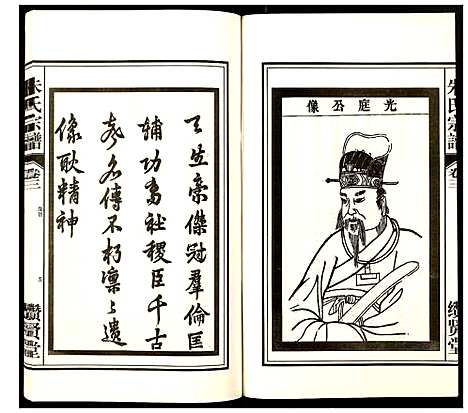 朱氏宗譜
卷三
繼賢堂
光庭公像
天生豪傑冠羣倫匡
輔功高社稷臣千古
芳名傳不朽凜凜遺
像耿精神
朱氏宗譜
卷三
繼賢堂